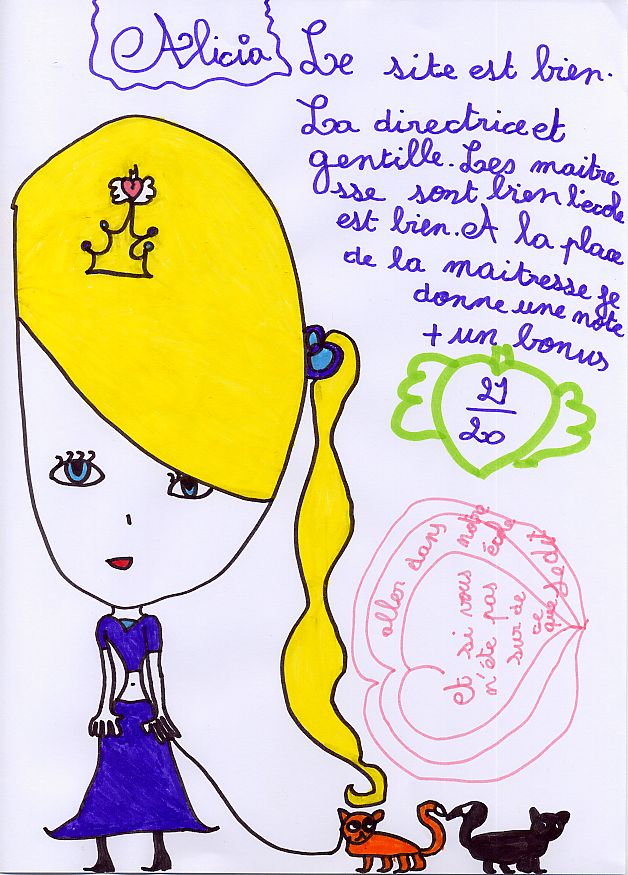 Alicia
Le site est bien.
La directrice et
gentille. Les maitre
sse sont bien l'ecole
est bien. A la place
de la maitresse je
donne une note
+ un bonus
21
20
et si vous
n'éte pas
sur de
ce
que je dit
aller dans notre
école